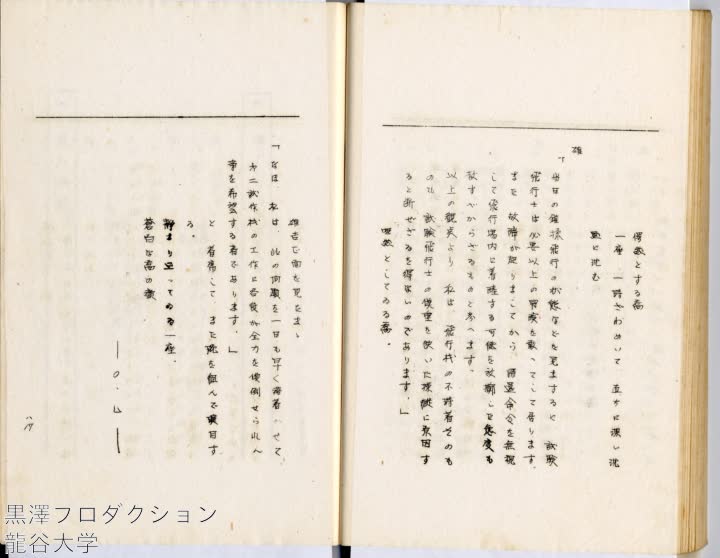 愕然とする高
一座 一時ざわめいて 直ちに深い沈
黙に沈む
雄
「当日の編隊飛行の状態などを見まするに 試験
飛行士は必要以上の冒険を敢へてして居ります。
また 故障が起りましてから 帰還命令を無視
して飛行場内に着陸する可能を放擲した態度も
赦すべからざるものと考へます。
以上の観点より 私は 飛行機の不時着そのも
のも 試験飛行士の慎重を欠いた操縦に原因す
ると断ぜざるを得ないのであります。」
唖然としてゐる高。
雄吉で面を見たまゝ
「なほ 私は 此の問題を一日も早く落着させて
第二試作機の工作に各役が全力を傾倒せられん
事を希望する者であります。」
と 着席して また腕を組んで瞑目す
る。
静まり返ってゐる一座。
蒼白な高の顔
—O・L—
黒澤プロダクション
龍谷大学